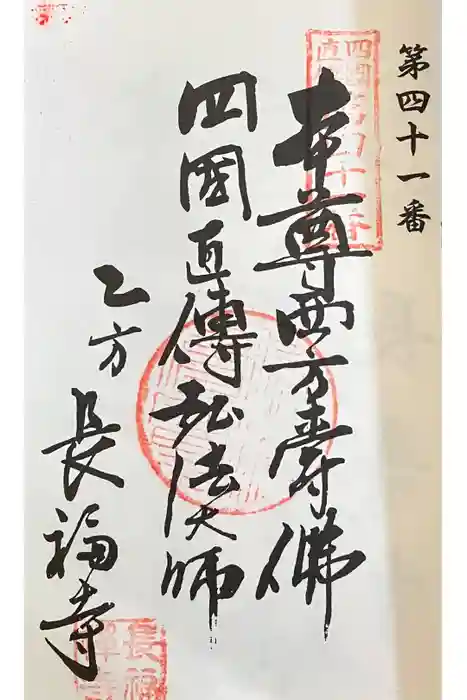 第四十一番
本尊西方壽佛
四國直傳弘法大師
乙方
長福寺